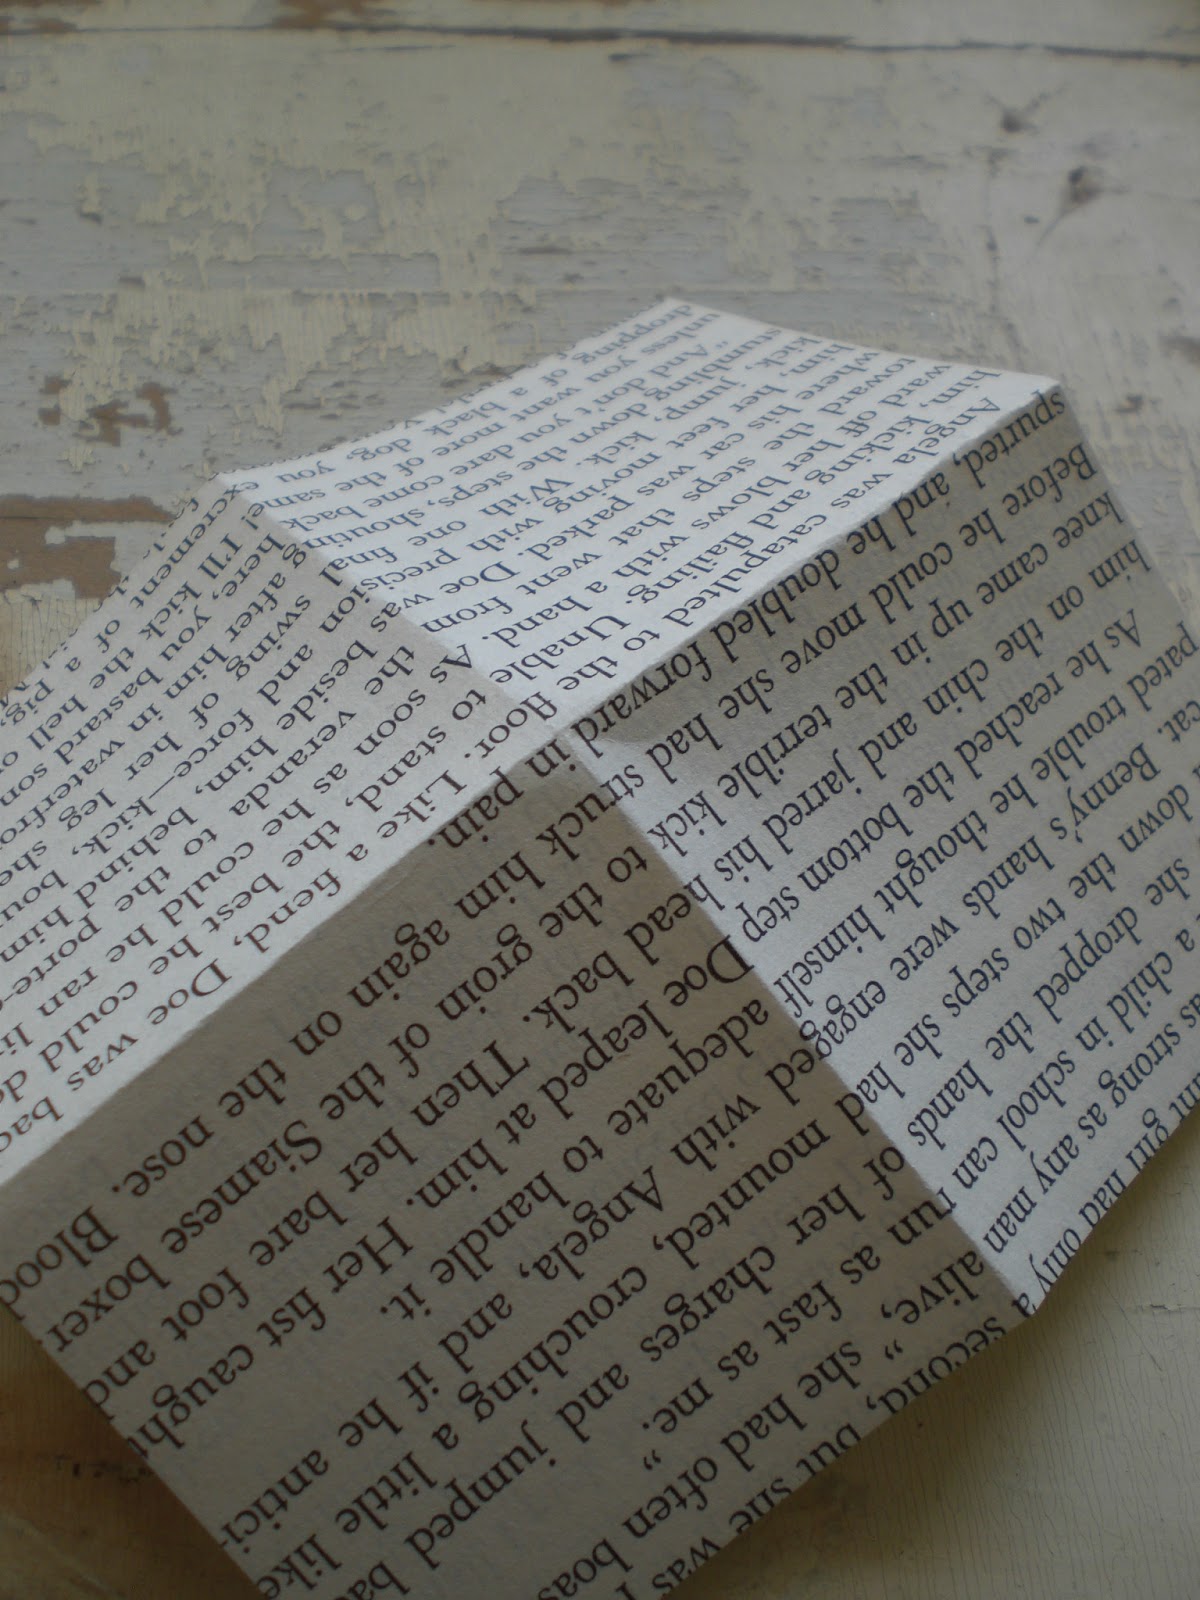 girl had only a second, but she was
as strong as any man alive,” she had often boas
a child in school can run as fast as me.”
she dropped the hands of her charges and jumped ba
down the two steps she had mounted, crouching a little like
cat. Benny's hands were engaged with Angela, and if he antici
pated trouble he thought himself adequate to handle it.
As he reached the bottom step Doe leaped at him. Her fist caught
him on the chin and jarred his head back. Then her bare foot and
knee came up in the terrible kick to the groin of the Siamese boxer.
Before he could move she had struck him again on the nose. Blood
spurted, and he doubled forward in pain.
Angela was catapulted to the floor. Like a fiend, Doe was bac
him, kicking and flailing. Unable to stand, the best he could do
ward off her blows with a hand. As soon as he could he ran li
toward the steps that went from the veranda to the porte-c
where his car was parked. Doe was beside him, behind him
him, her feet moving with precision and force—kick, bou
kick, jump, kick. With one final swing of her leg she
stumbling down the steps, shouting after him in waterfro
“And don't you dare come back here, you bastard son
unless you want more of the same! I'll kick the hell o
dropping of a black dog, you excrement of a pig,